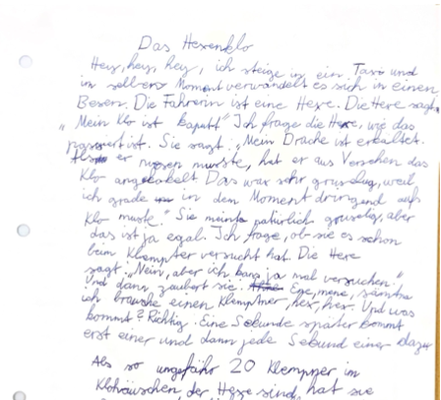 Das Hexenklo
Hey, hey, hey, ich steige in ein Taxi und
im selben Moment verwandelt es sich in einen
Besen. Die Fahrerin ist eine Hexe. Die Hexe sagt,
"Mein Klo ist kaputt" Ich frage die Hexe, wie das
passiert ist. Sie sagt: "Mein Drache ist erkältet.
Als er niesen musste, hat er aus Versehen das
Klo angekokelt Das war sehr gruselug, weil
ich grade in dem Moment dringend aufs
Klo muste." Sie meinte natürlich gruselig, aber
das ist ja egal. Ich frage, ob sie es schon
beim Klempter versucht hat. Die Hexe
sagt: "Nein, aber ich kann ja mal versuchen."
Und dann zaubert sie: Ene, mene,
ich brauche einen Klemptner, hex, hex. Und was
kommt? Richtig. Eine Sekunde später kommt
erst einer und dann jede Sekund einer dazu
Als so ungefähr 20 Klempner im
Klohäuschen der Hexe sind, hat sie